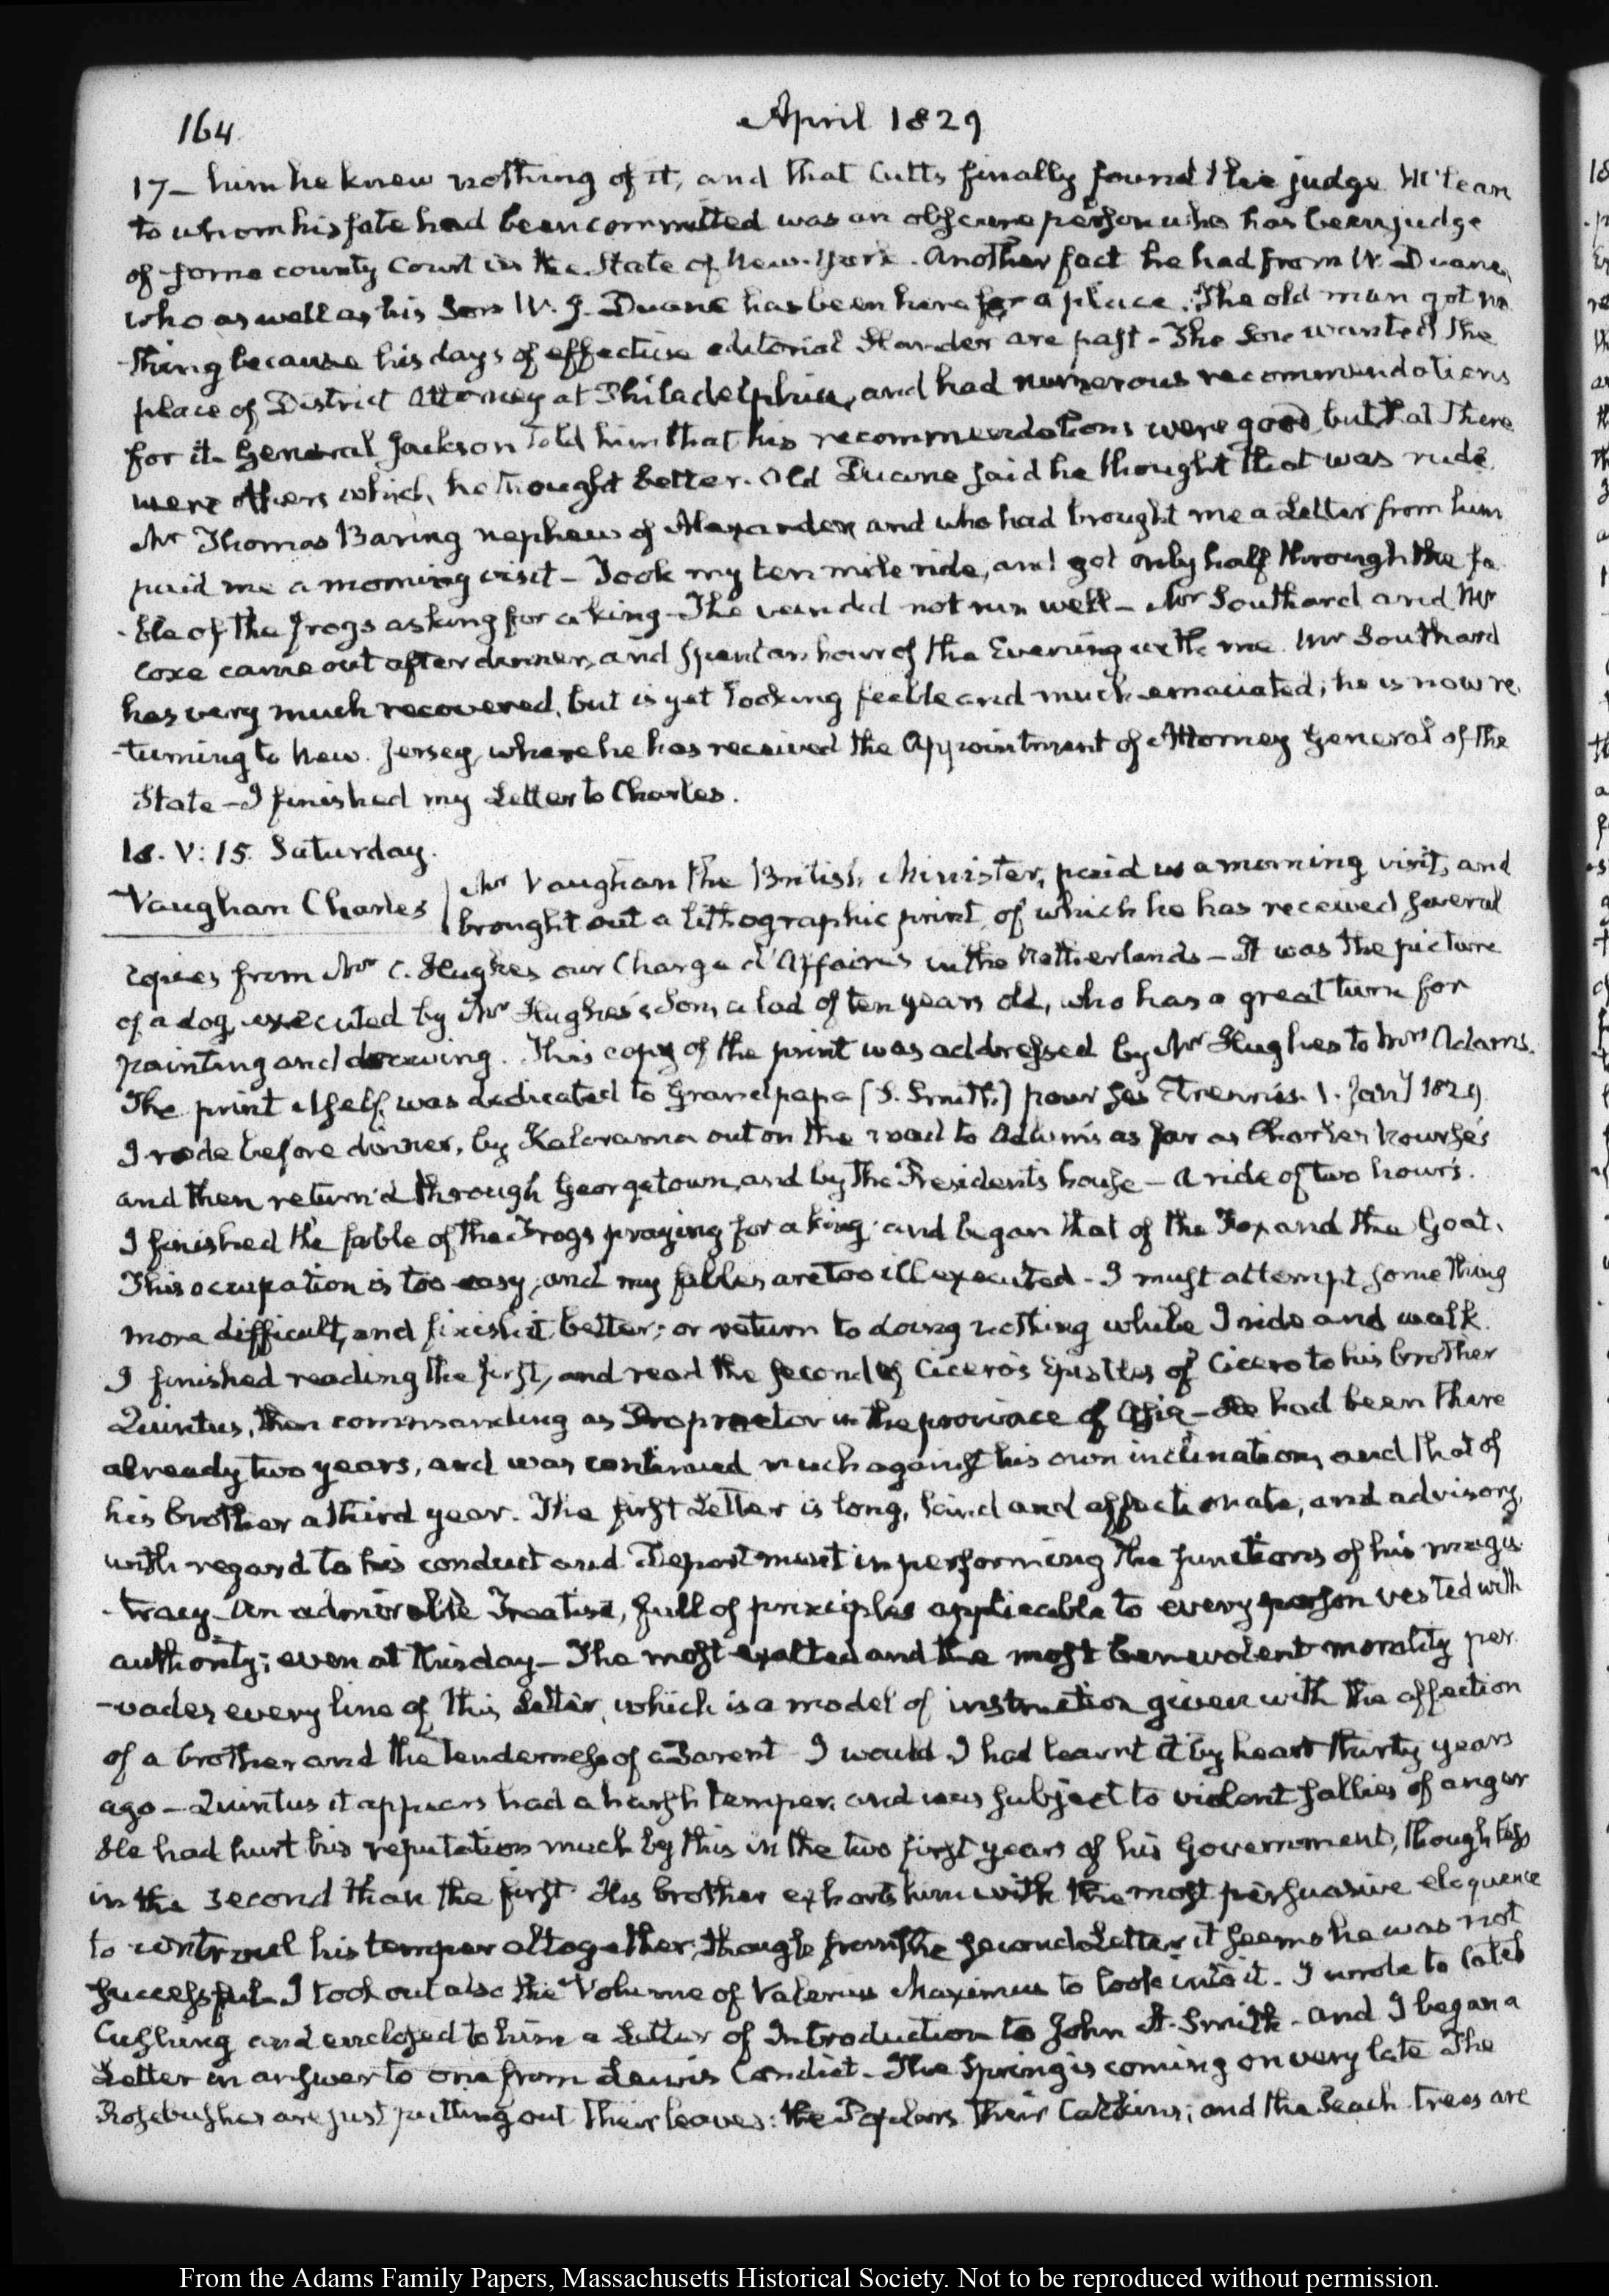 164
April 1829
17 – him he knew nothing of it, and that Cutts finally found this judge McLean
to whom his fate had been committed was an obscure person who has been judge
of some county Court in the State of New-York. Another fact he had from W. Duane,
who as well as his Son W. J. Duane has been here for a place. The old man got no
-thing because his days of effective editorial slander are past – The Son wanted the
place of District Attorney at Philadelphia, and had numerous recommendations
for it – General Jackson told him that his recommendations were good, but that there
were others which he thought better. Old Duane said he thought that was rude.
Mr Thomas Baring nephew of Alexander, and who had brought me a Letter from him
paid me a morning visit – Took my ten mile ride, and got only half through the fa
-ble of the frogs asking for a king – The vein did not run well – Mr Southard and Mr
Coxe came out after dinner, and spent an hour of the Evening with me. Mr Southard
has very much recovered, but is yet looking feeble and much emaciated; he is now re
-turning to New-Jersey, where he has received the Appointment of Attorney General of the
State – I finished my Letter to Charles.
18. V: 15. Saturday.
Vaughan Charles
Mr Vaughan the British Minister, paid us a morning visit, and
brought out a lithographic print, of which he has received several
copies from Mr C. Hughes our Chargé d'Affaires in the Netherlands – It was the picture
of a dog, executed by Mr Hughes's Son, a lad of ten years old, who has a great turn for
painting and drawing. This copy of the print was addressed by Mr Hughes to Mrs Adams.
The print itself, was dedicated to Grandpapa (S. Smith.) pour ses Etrennes. 1. Jany 1829.
I rode before dinner, by Kalorama out on the road to as far as Charles Nourse's
and then return'd through Georgetown, and by the President's house – a ride of two hours.
I finished the fable of the Frogs praying for a king, and began that of the Fox and the Goat.
This occupation is too easy, and my fables are too ill executed – I must attempt something
more difficult, and finish it better; or return to doing nothing while I ride and walk.
I finished reading the first, and read the second of Cicero's Epistles of Cicero to his brother
Quintus, then commanding as Propraetor in the province of Asia – He had been there
already two years, and was continued much against his own inclination, and that of
his brother a third year. The first Letter is long, kind and affectionate, and advisory,
with regard to his conduct and Deportment in performing the functions of his magis
-tracy – An admirable Treatise, full of principles applicable to every person vested with
authority; even at this day – The most exalted and the most benevolent morality per
-vades every line of this Letter, which is a model of instruction given with the affection
of a brother and the tenderness of a Parent – I would I had learnt it by heart thirty years
ago – Quintus it appears had a harsh temper, and was subject to violent sallies of anger
He had hurt his reputation much by this in the two first years of his Government, though less
in the second than the first. His brother exhorts him with the most persuasive eloquence
to controul his temper altogether, though from the second Letter it seems he was not
successful – I took out also the Volume of Valerius Maximus to look into it. I wrote to Caleb
Cushing and enclosed to him a Letter of Introduction to John A. Smith – and I began a
Letter in answer to one from Lewis Condict – The Spring is coming on very late The
Rosebushes are just putting out their leaves: the Poplars their Catkins; and the Peach trees are
From the Adams Family Papers, Massachusetts Historical Society. Not to be reproduced without permission.